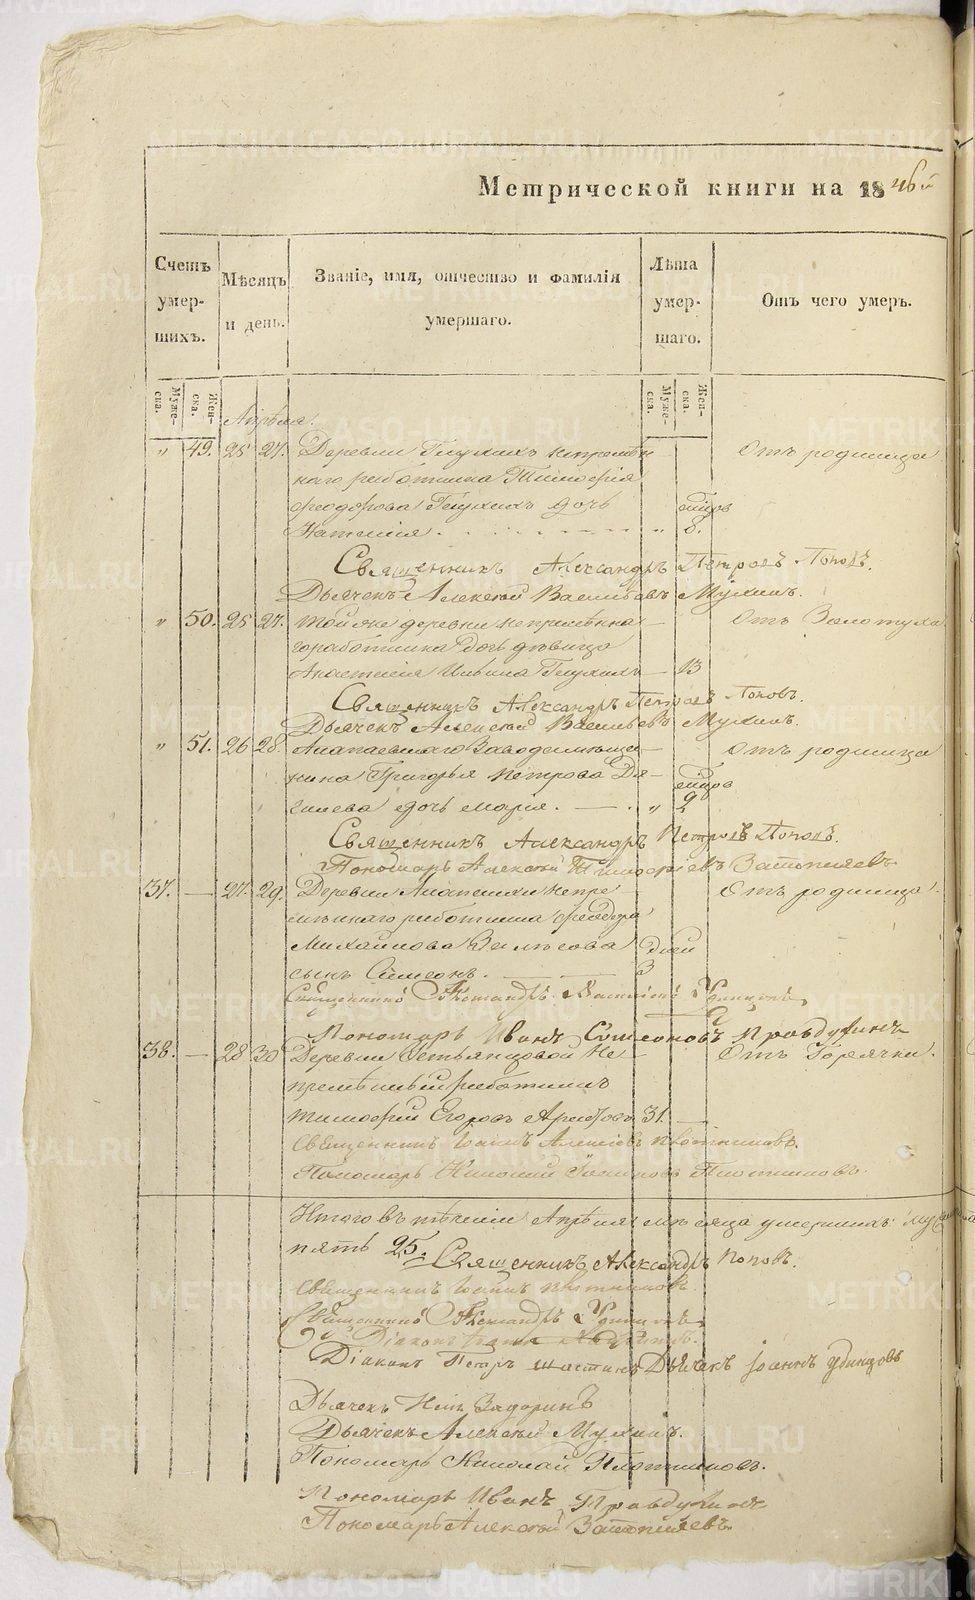 Метрической книги на 1846й
Счетъ умер-шихъ.
Мѣсяцъ и день.
Званіе, имя, отчество и фамилія умершаго.
Лѣта умер-шаго.
Отъ чего умеръ.
Муже-ска.
Жен-ска.
Муже-ска.
Жен-ска.
Апрѣля.
„ 49. 25 27. Деревни Глухихъ непремѣн Отъ родимца
наго работника Тимофея
Феодорова Глухихъ дочь
„ 8.
Священникъ Александръ Петровъ Поповъ.
Дьячекъ Алексей Васильевъ Мухинъ.
„ 50. 25 27. Той же деревни непремѣнна Отъ Золотухи
гоработника дочь дѣвица
Анастасія Ильина Глухихъ 13
Священникъ Александръ Петровъ Поповъ.
Дьячекъ Алексей Васильевъ Мухинъ.
„ 51. 26 28 Алапаевскаго Завода Отъ родимца
нина Григорья Петрова
дочь Марія. „ 9
Священникъ Александръ Петровъ Поповъ.
Пономарь Алексей Тимофеевъ
37. — 27. 29. Деревни Алапаихи непре Отъ родимца.
мѣннаго работника Феодора
Михайлова
сынъ Симеонъ. дней 3
Священникъ Александръ Удинцовъ
Пономарь Иванъ Симеоновъ Правдухинъ
38. — 28 30 Деревни Устьянцовой Не Отъ Горячки.
премѣнный работникъ
Тимофей Егоровъ 31. —
Священникъ Іоаннъ Алексіевъ Плотниковъ.
Пономарь Николай Плотниковъ.
Итого въ теченіи Апрѣля мѣсяца умершихъ
пять 25. Священникъ Александръ Поповъ.
Священникъ Іоаннъ Плотниковъ
Священникъ Александръ Удинцовъ
Діаконъ
Діаконъ Петръ Дьячекъ Іоаннъ Удинцовъ
Дьячекъ Задоринъ
Дьячекъ Алексей Мухинъ.
Пономарь Николай Плотниковъ.
Пономарь Иванъ Правдухинъ
Пономарь Алексей
METRIKI.GASO-URAL.RU